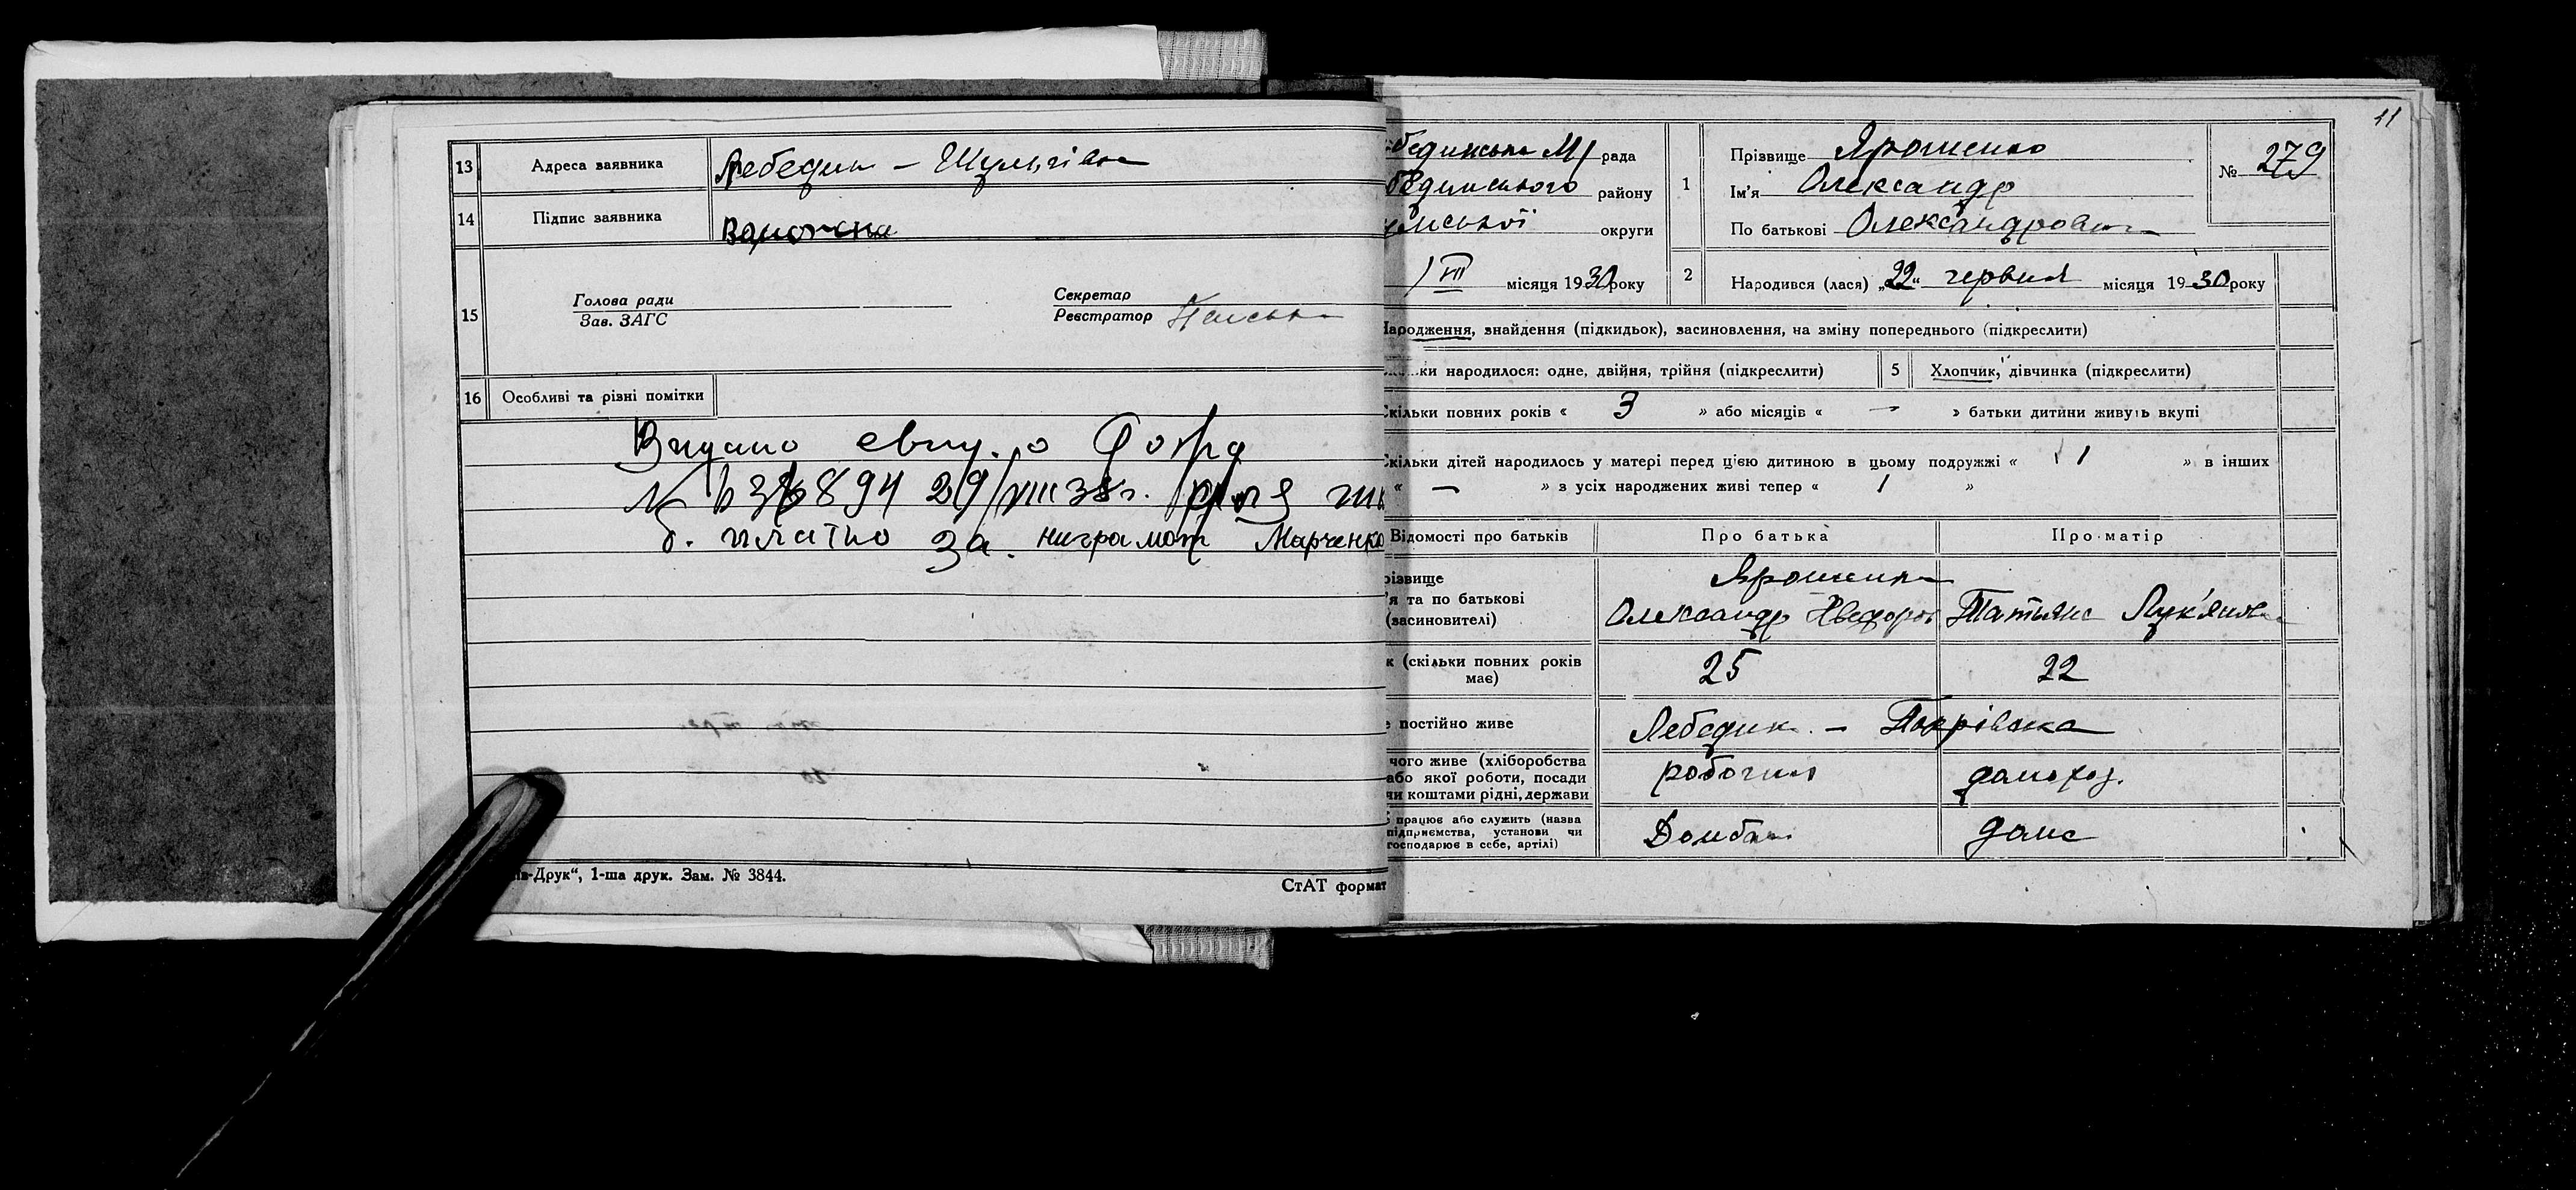 13 Адреса заявника Лебедин – Шульгівка
14 Підпис заявника
15 Голова ради
Зав. ЗАГС
Секретар
Реєстратор
16 Особливі та різні помітки
Видано свид. о
29/VIII 38 г.
б. платно за. Марченко
-Друк“, 1-ша друк. Зам. № 3844.
СтАТ формат
11
бединська М/рада
бединського району
мської округи
1 Прізвище Ярошенко
Ім'я Олександр
По батькові Олександрович
№ 279
1/VII місяця 1930 року
2 Народився (лася) „22“ червня місяця 1930 року
Народження, знайдення (підкидьок), засиновлення, на зміну попереднього (підкреслити)
ки народилося: одне, двійня, трійня (підкреслити)
5 Хлопчик, дівчинка (підкреслити)
Скільки повних років « 3 » або місяців « — » батьки дитини живуть вкупі
Скільки дітей народилось у матері перед цією дитиною в цьому подружжі « 1 » в інших
« — » з усіх народжених живі тепер « 1 »
Відомості про батьків Про батька Про матір
різвище Ярошенко
'я та по батькові
(засиновителі) Олександр Татьяна Лук'янівна
к (скільки повних років
має) 25 22
е постійно живе Лебедин. –
чого живе (хліборобства
або якої роботи, посади
чи коштами рідні, держави робочий домогосп.
працює або служить (назва
підприємства, установи чи
господарює в себе, артілі) Донбас дома